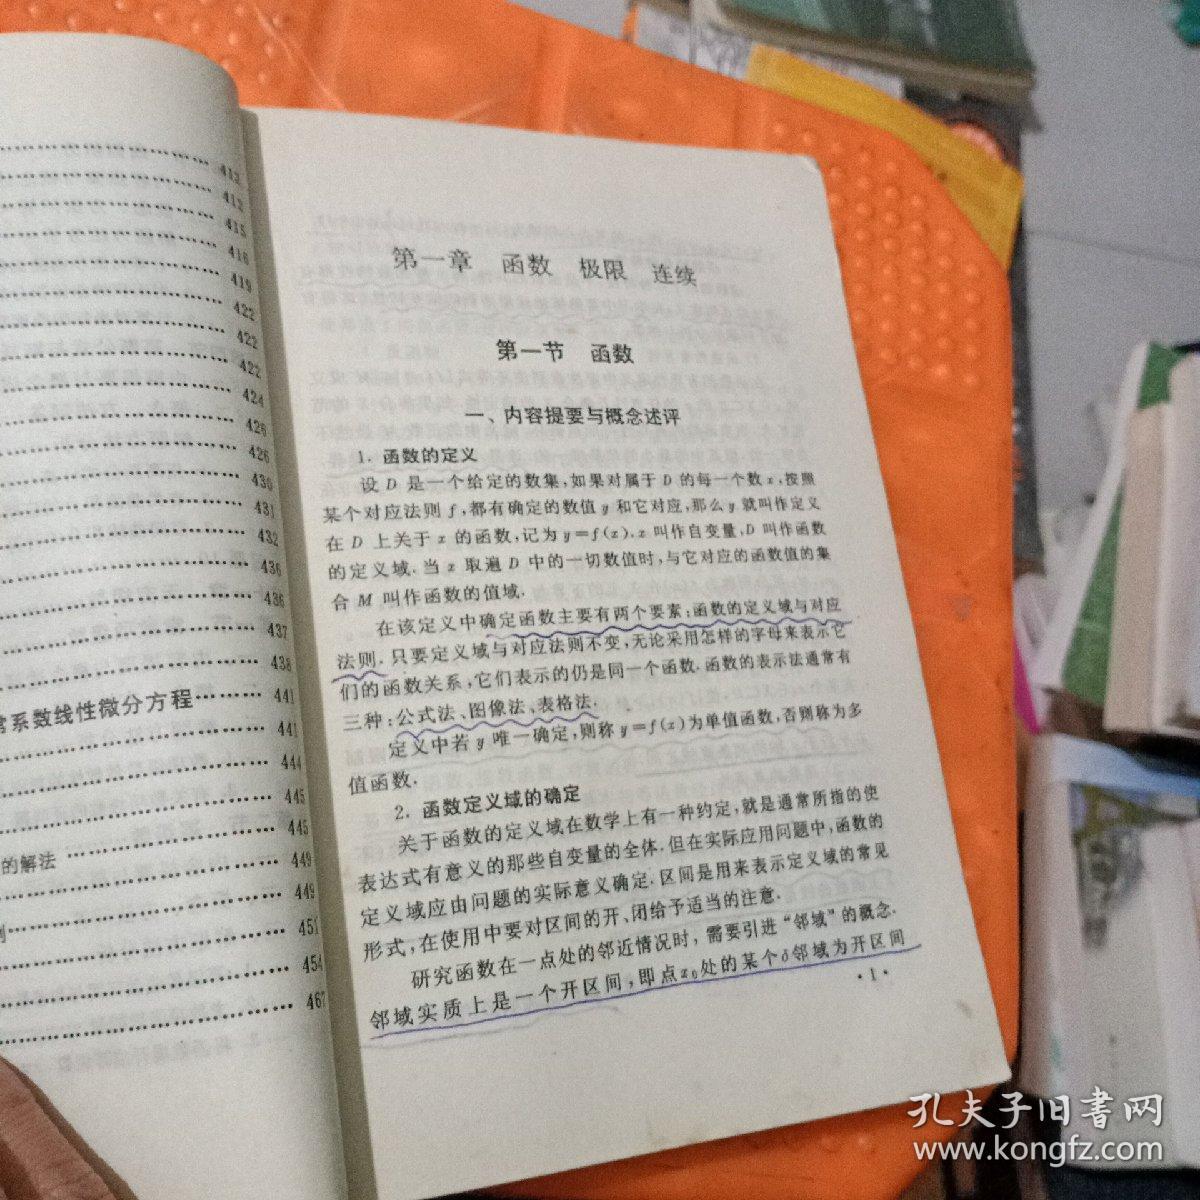 413
412
415
416
419
422
422
422
424
426
426
430
431
432
436
436
437
438
常系数线性微分方程………… 441
441
444
445
的解法 ………………………… 445
449
例………………………… 449
451
454
467
第一章 函数 极限 连续
第一节 函数
一、内容提要与概念述评
1. 函数的定义
设 D 是一个给定的数集,如果对属于 D 的每一个数 x,按照
某个对应法则 f,都有确定的数值 y 和它对应,那么 y 就叫作定义
在 D 上关于 x 的函数,记为 y=f(x).x 叫作自变量,D 叫作函数
的定义域.当 x 取遍 D 中的一切数值时,与它对应的函数值的集
合 M 叫作函数的值域.
在该定义中确定函数主要有两个要素:函数的定义域与对应
法则.只要定义域与对应法则不变,无论采用怎样的字母来表示它
们的函数关系,它们表示的仍是同一个函数.函数的表示法通常有
三种:公式法、图像法、表格法.
定义中若 y 唯一确定,则称 y=f(x)为单值函数,否则称为多
值函数.
2. 函数定义域的确定
关于函数的定义域在数学上有一种约定,就是通常所指的使
表达式有意义的那些自变量的全体.但在实际应用问题中,函数的
定义域应由问题的实际意义确定.区间是用来表示定义域的常见
形式,在使用中要对区间的开、闭给予适当的注意.
研究函数在一点处的邻近情况时,需要引进“邻域”的概念.
邻域实质上是一个开区间,即点x₀处的某个δ邻域为开区间
·1·
孔夫子旧书网
www.kongfz.com